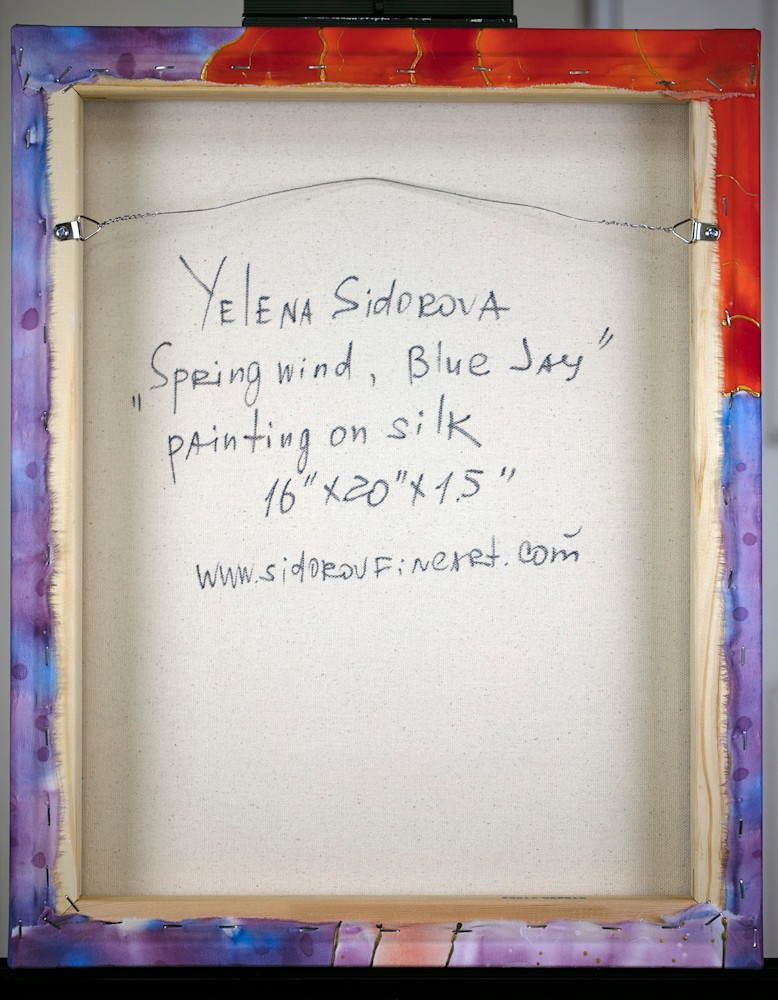 Yelena Sidorova
„Spring wind, Blue Jay"
painting on silk
16"x20"x1.5"
www.sidorovfineart.com